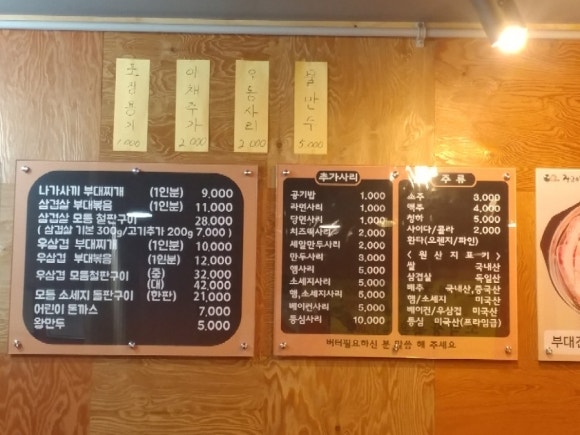 야채추가 2,000
우동사리 2,000
물만두 5,000
나가사끼 부대찌개 (1인분) 9,000
삼겹살 부대볶음 (1인분) 11,000
삼겹살 모듬 철판구이 28,000
( 삼겹살 기본 300g/고기추가 200g 7,000 )
우삼겹 부대찌개 (1인분) 10,000
우삼겹 부대볶음 (1인분) 12,000
우삼겹 모듬철판구이 (중) 32,000
(대) 42,000
모듬 소세지 철판구이 (한판) 21,000
어린이 돈까스 7,000
왕만두 5,000
추가사리
공기밥 1,000
라면사리 1,000
당면사리 1,000
치즈떡사리 2,000
세알만두사리 2,000
만두사리 3,000
햄사리 5,000
소세지사리 5,000
햄,소세지사리 5,000
베이컨사리 5,000
등심사리 10,000
주 류
소주 3,000
맥주 4,000
청하 5,000
사이다/콜라 2,000
환타(오렌지/파인)
< 원 산 지 표 기 >
쌀 국내산
삼겹살 독일산
배추 국내산,중국산
햄/소세지 미국산
베이컨/우삼겹 미국산
등심 미국산(프라임급)
버터필요하신 분 말씀 해 주세요